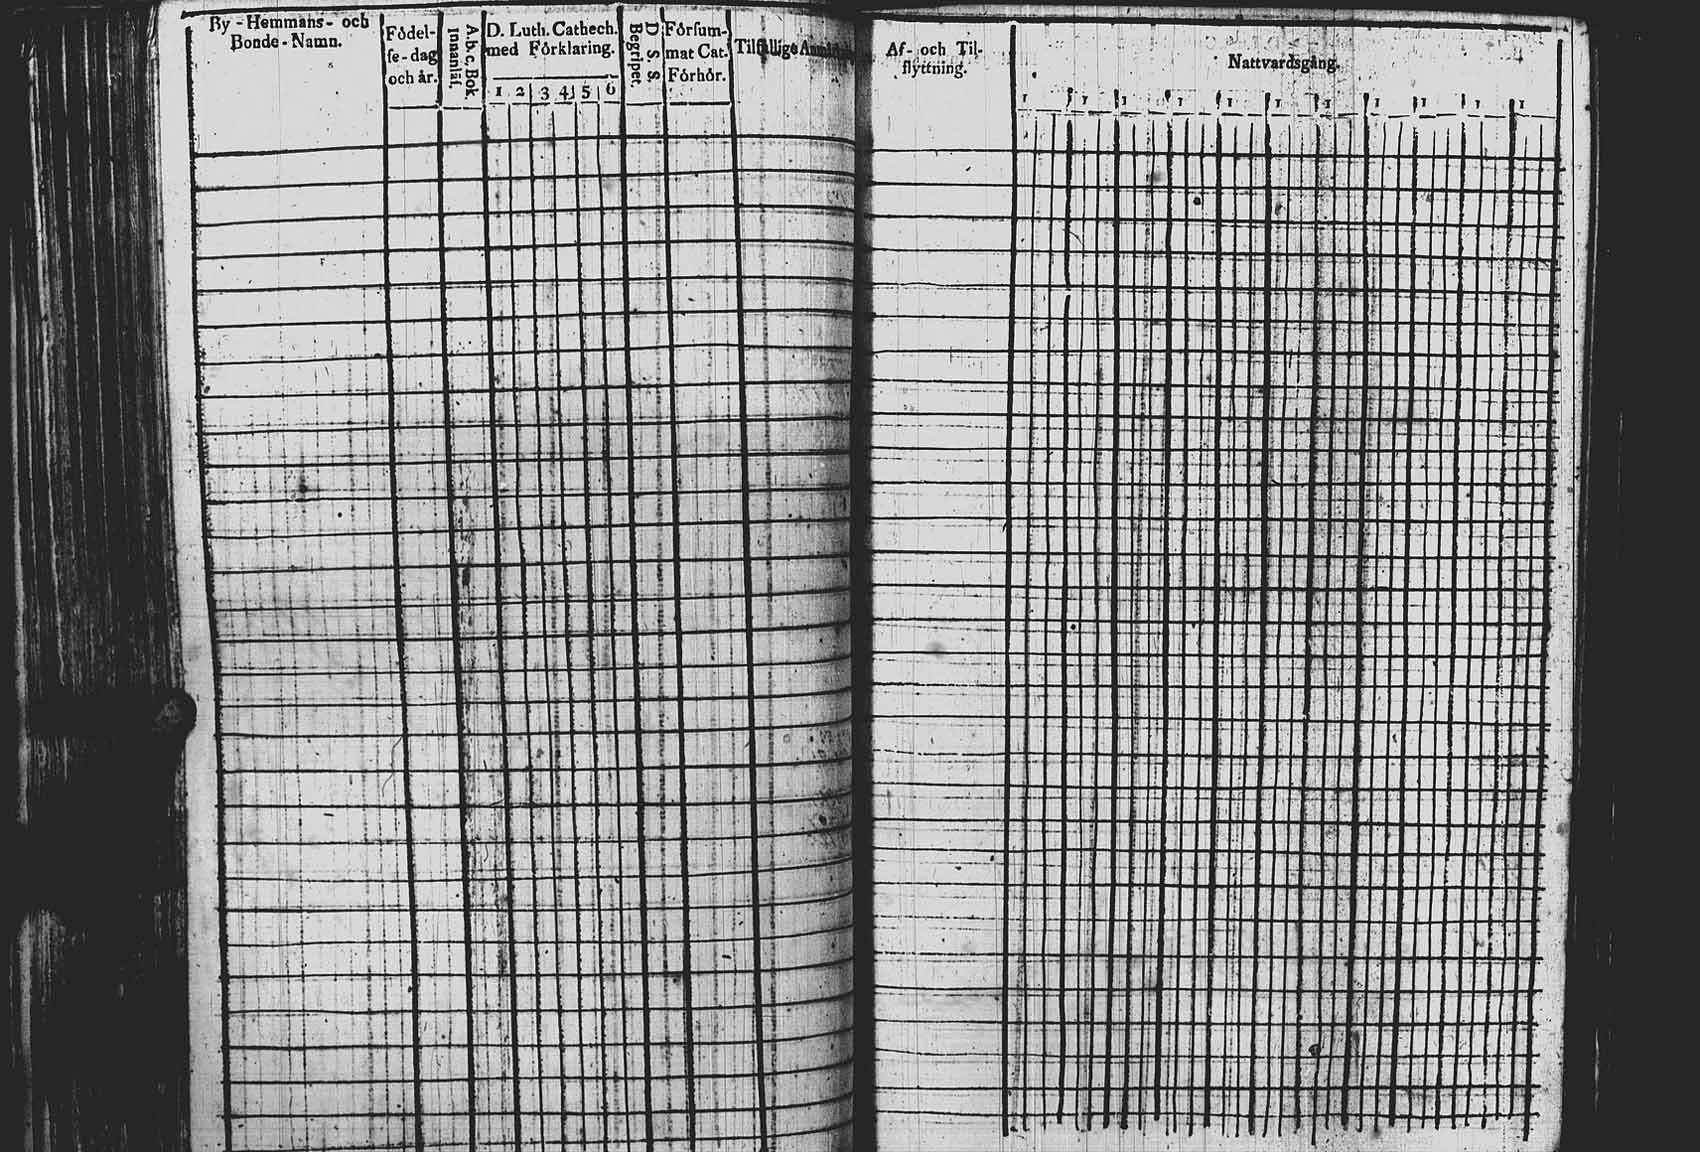 By-Hemmans- och
Bonde-Namn.
Födel-
se-dag
och år.
A.b.c. Bok
Innanläs.
D. Luth. Cathech.
med Förklaring.
1 2 3 4 5 6
D. S. S.
Begripet.
Försum-
mat Cat.
Förhör.
Tilfällige
Af- och Til-
flyttning.
Nattvardsgång.
1 1 1 1 1 1 1 1 1 1 1